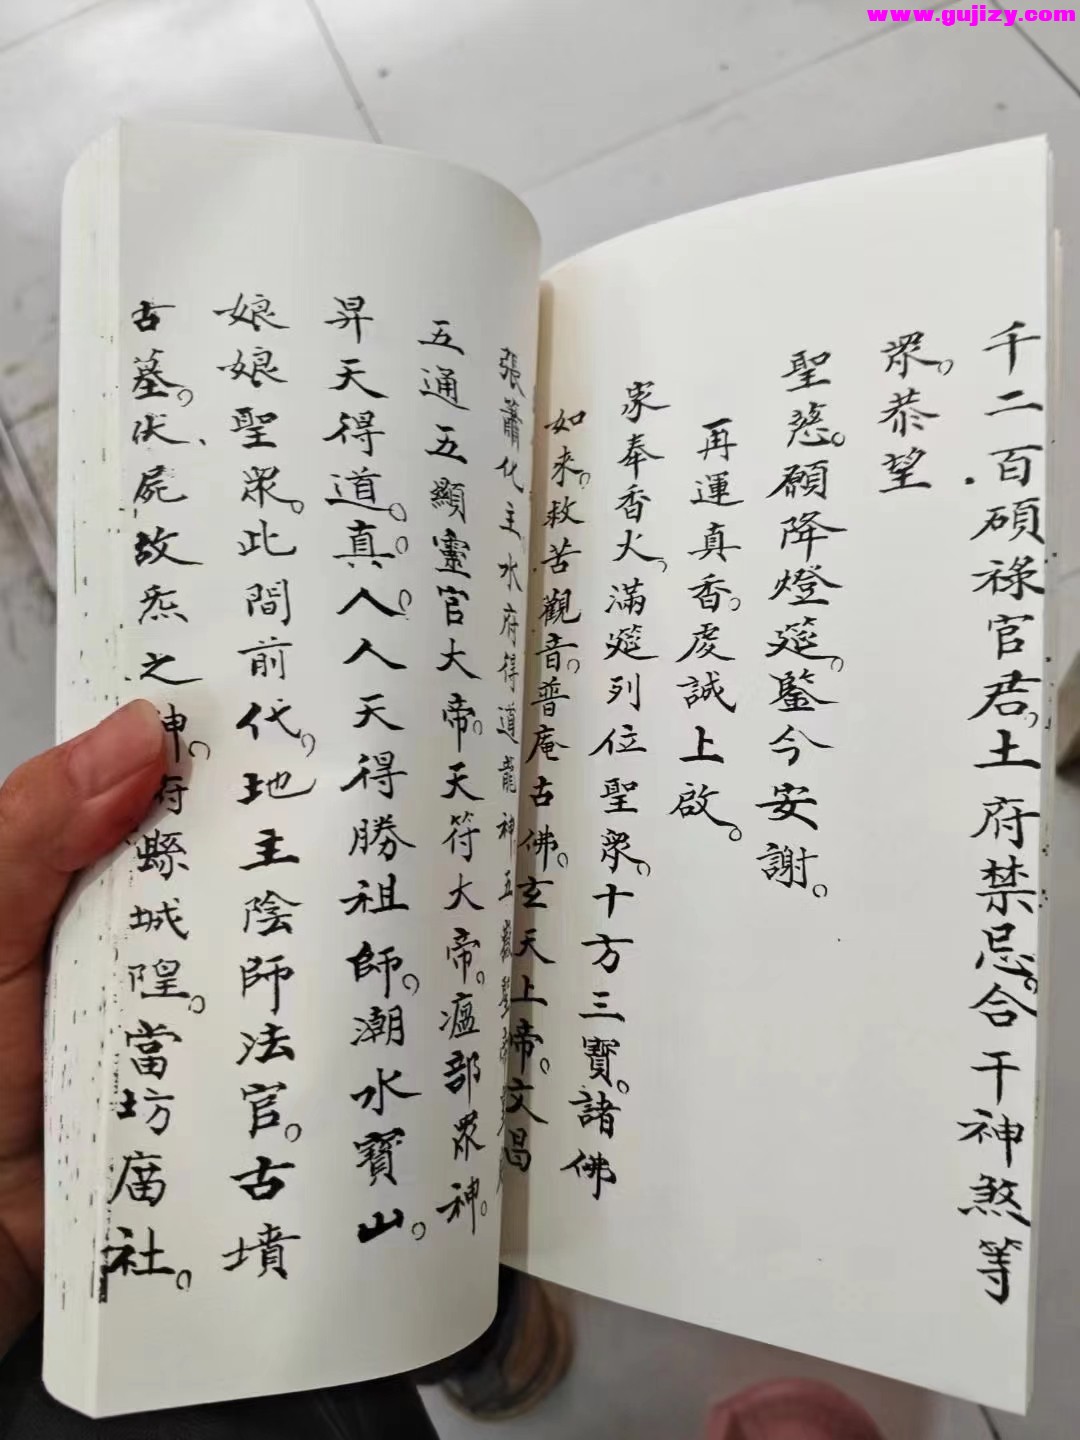 www.gujizy.com
千二百碩祿官君。土府禁忌。合干神煞等
眾。恭望
聖慈。願降燈筵。鑒今安謝。
再運真香。虔誠上啟。
家奉香火。滿筵列位聖眾。十方三寶。諸佛
如來。救苦觀音。普庵古佛。玄天上帝。文昌
張蕭化主。水府得道龍神五
五通五顯靈官大帝。天符大帝。瘟部眾神。
昇天得道。真。人人天得勝祖師。潮水寶山。
娘娘聖眾。此間前代。地主陰師法官。古墳
古墓。伏屍故炁之神。府縣城隍。當坊庙社。